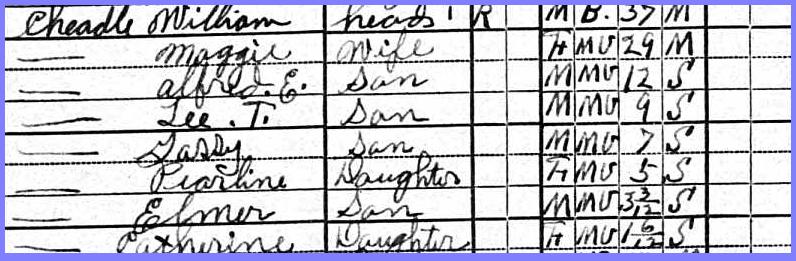 Cheadle William head R M B. 37 M
— Maggie Wife F Mu 29 M
— Alfred. E. Son M Mu 12 S
— Lee. T. Son M Mu 9 S
— Son M Mu 7 S
— Pearline Daughter F Mu 5 S
— Elmer Son M Mu 3 3/12 S
— Catherine Daughter F Mu 1 6/12 S